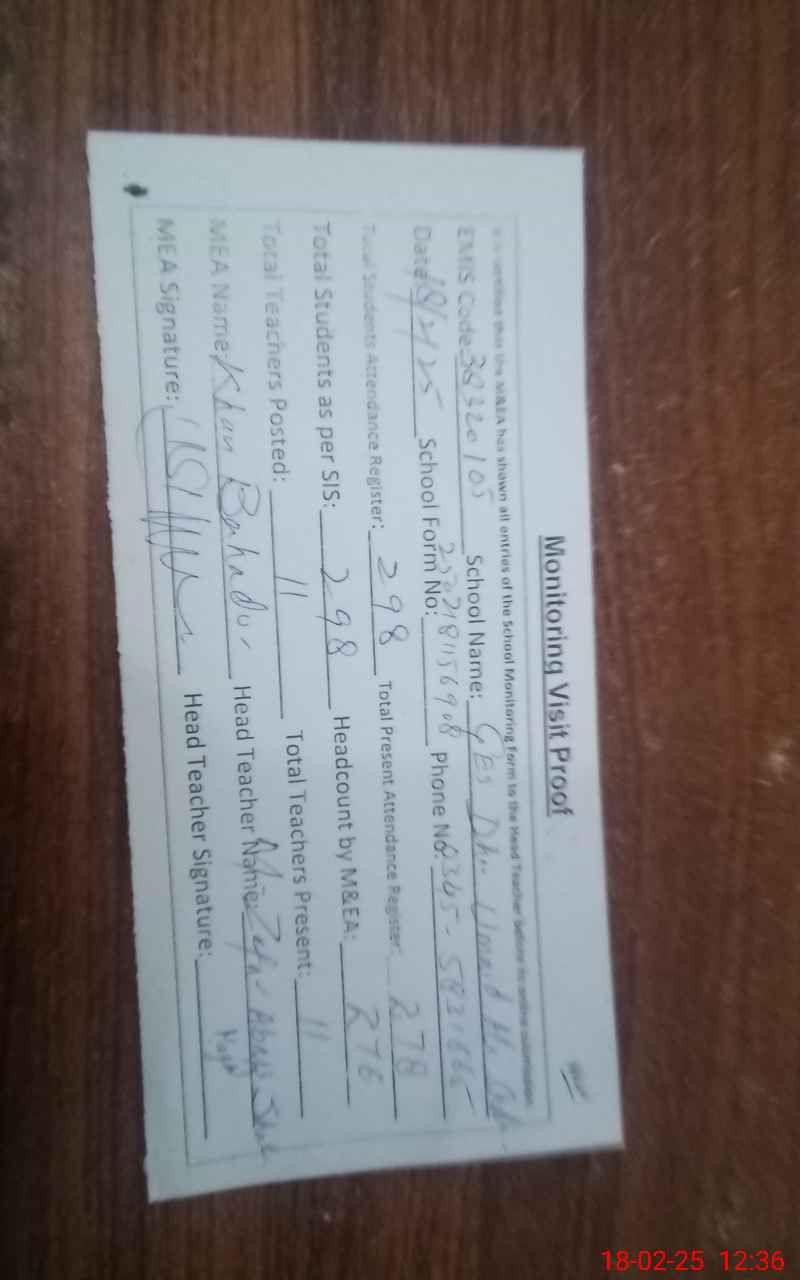 Monitoring Visit Proof
It is certified that the M&EA has shown all entries of the School Monitoring Form to the Head Teacher before its online submission.
EMIS Code: 38320105 School Name: GES
Date: 18/2/25 School Form No: Phone No:
Total Students Attendance Register: 298 Total Present Attendance Register: 278
Total Students as per SIS: 298 Headcount by M&EA: 276
Total Teachers Posted: 11 Total Teachers Present: 11
MEA Name: Khan Bahadur Head Teacher Name:
MEA Signature: Head Teacher Signature:
18-02-25 12:36